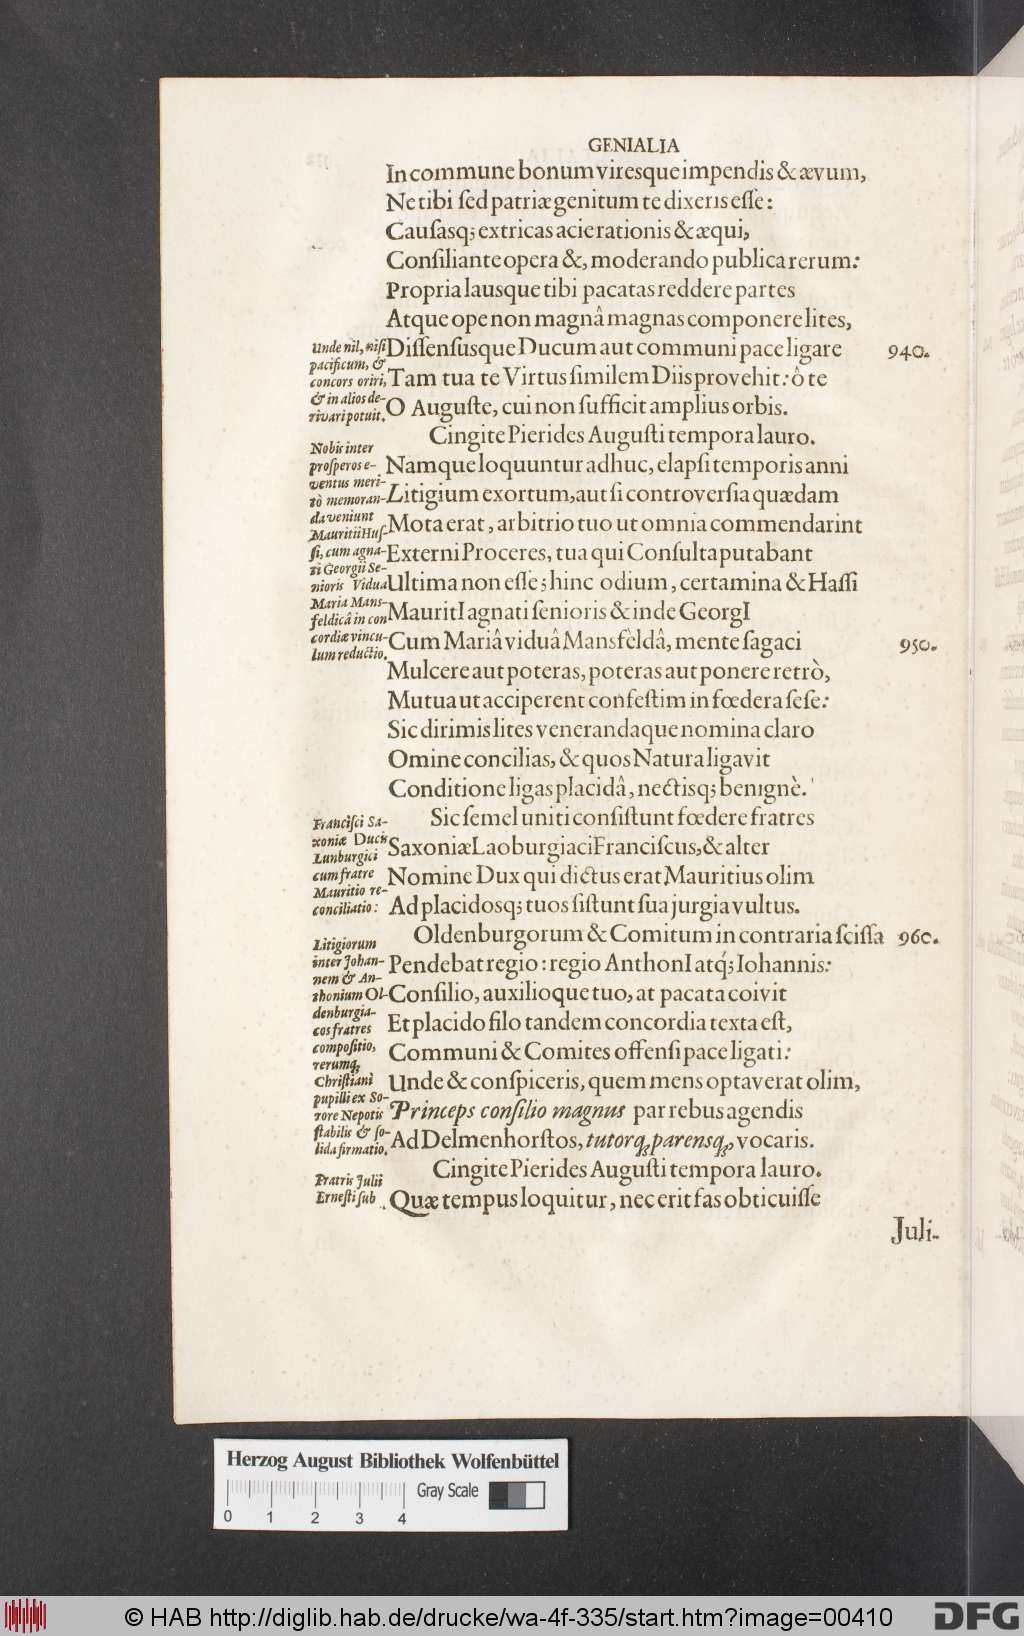 GENIALIA
In commune bonum viresque impendis & ævum,
Ne tibi ſed patriæ genitum te dixeris eſſe:
Cauſasq; extricas acie rationis & æqui,
Conſiliante opera &, moderando publica rerum:
Propria lausque tibi pacatas reddere partes
Atque ope non magnâ magnas componere lites,
Diſſenſusque Ducum aut communi pace ligare 940.
Tam tua te Virtus ſimilem Diis provehit: ô te
O Auguſte, cui non ſufficit amplius orbis.
Cingite Pierides Auguſti tempora lauro.
Namque loquuntur adhuc, elapſi temporis anni
Litigium exortum, aut ſi controverſia quædam
Mota erat, arbitrio tuo ut omnia commendarint
Externi Proceres, tua qui Conſulta putabant
Ultima non eſſe; hinc odium, certamina & Haſſi
MauritI agnati ſenioris & inde GeorgI
Cum Mariâ viduâ Mansfeldâ, mente ſagaci 950.
Mulcere aut poteras, poteras aut ponere retrò,
Mutua ut acciperent confeſtim in fœdera ſeſe:
Sic dirimis lites venerandaque nomina claro
Omine concilias, & quos Natura ligavit
Conditione ligas placidâ, nectisq; benignè.
Sic ſemel uniti conſiſtunt fœdere fratres
Saxoniæ Laoburgiaci Franciſcus, & alter
Nomine Dux qui dictus erat Mauritius olim
Ad placidosq; tuos ſiſtunt ſua jurgia vultus.
Oldenburgorum & Comitum in contraria ſciſſa 960.
Pendebat regio: regio AnthonI atq́; Iohannis:
Conſilio, auxilioque tuo, at pacata coivit
Et placido filo tandem concordia texta eſt,
Communi & Comites offenſi pace ligati:
Unde & conſpiceris, quem mens optaverat olim,
Princeps conſilio magnus par rebus agendis
Ad Delmenhorſtos, tutorq; parensq;, vocaris.
Cingite Pierides Auguſti tempora lauro.
Quæ tempus loquitur, nec erit fas obticuiſſe
Juli-
Unde nil, niſi
pacificum, &
concors oriri,
& in alios de-
rivari potuit.
Nobis inter
proſperos e-
ventus meri-
tò memoran-
da veniunt
Mauritii Huſ-
ſi, cum agna-
ti Georgii Se-
nioris Vidua
Maria Mans-
feldicâ in con
cordiæ vincu-
lum reductio.
Franciſci Sa-
xoniæ Ducis
Lunburgici
cum fratre
Mauritio re-
conciliatio:
Litigiorum
inter Johan-
nem & An-
thonium Ol-
denburgia-
cos fratres
compoſitio,
rerumq;
Chriſtiani
pupilli ex So-
rore Nepotis
ſtabilis & ſo-
lida firmatio.
Fratris Julii
Erneſti ſub
Herzog August Bibliothek Wolfenbüttel
Gray Scale
0 1 2 3 4
© HAB http://diglib.hab.de/drucke/wa-4f-335/start.htm?image=00410
DFG